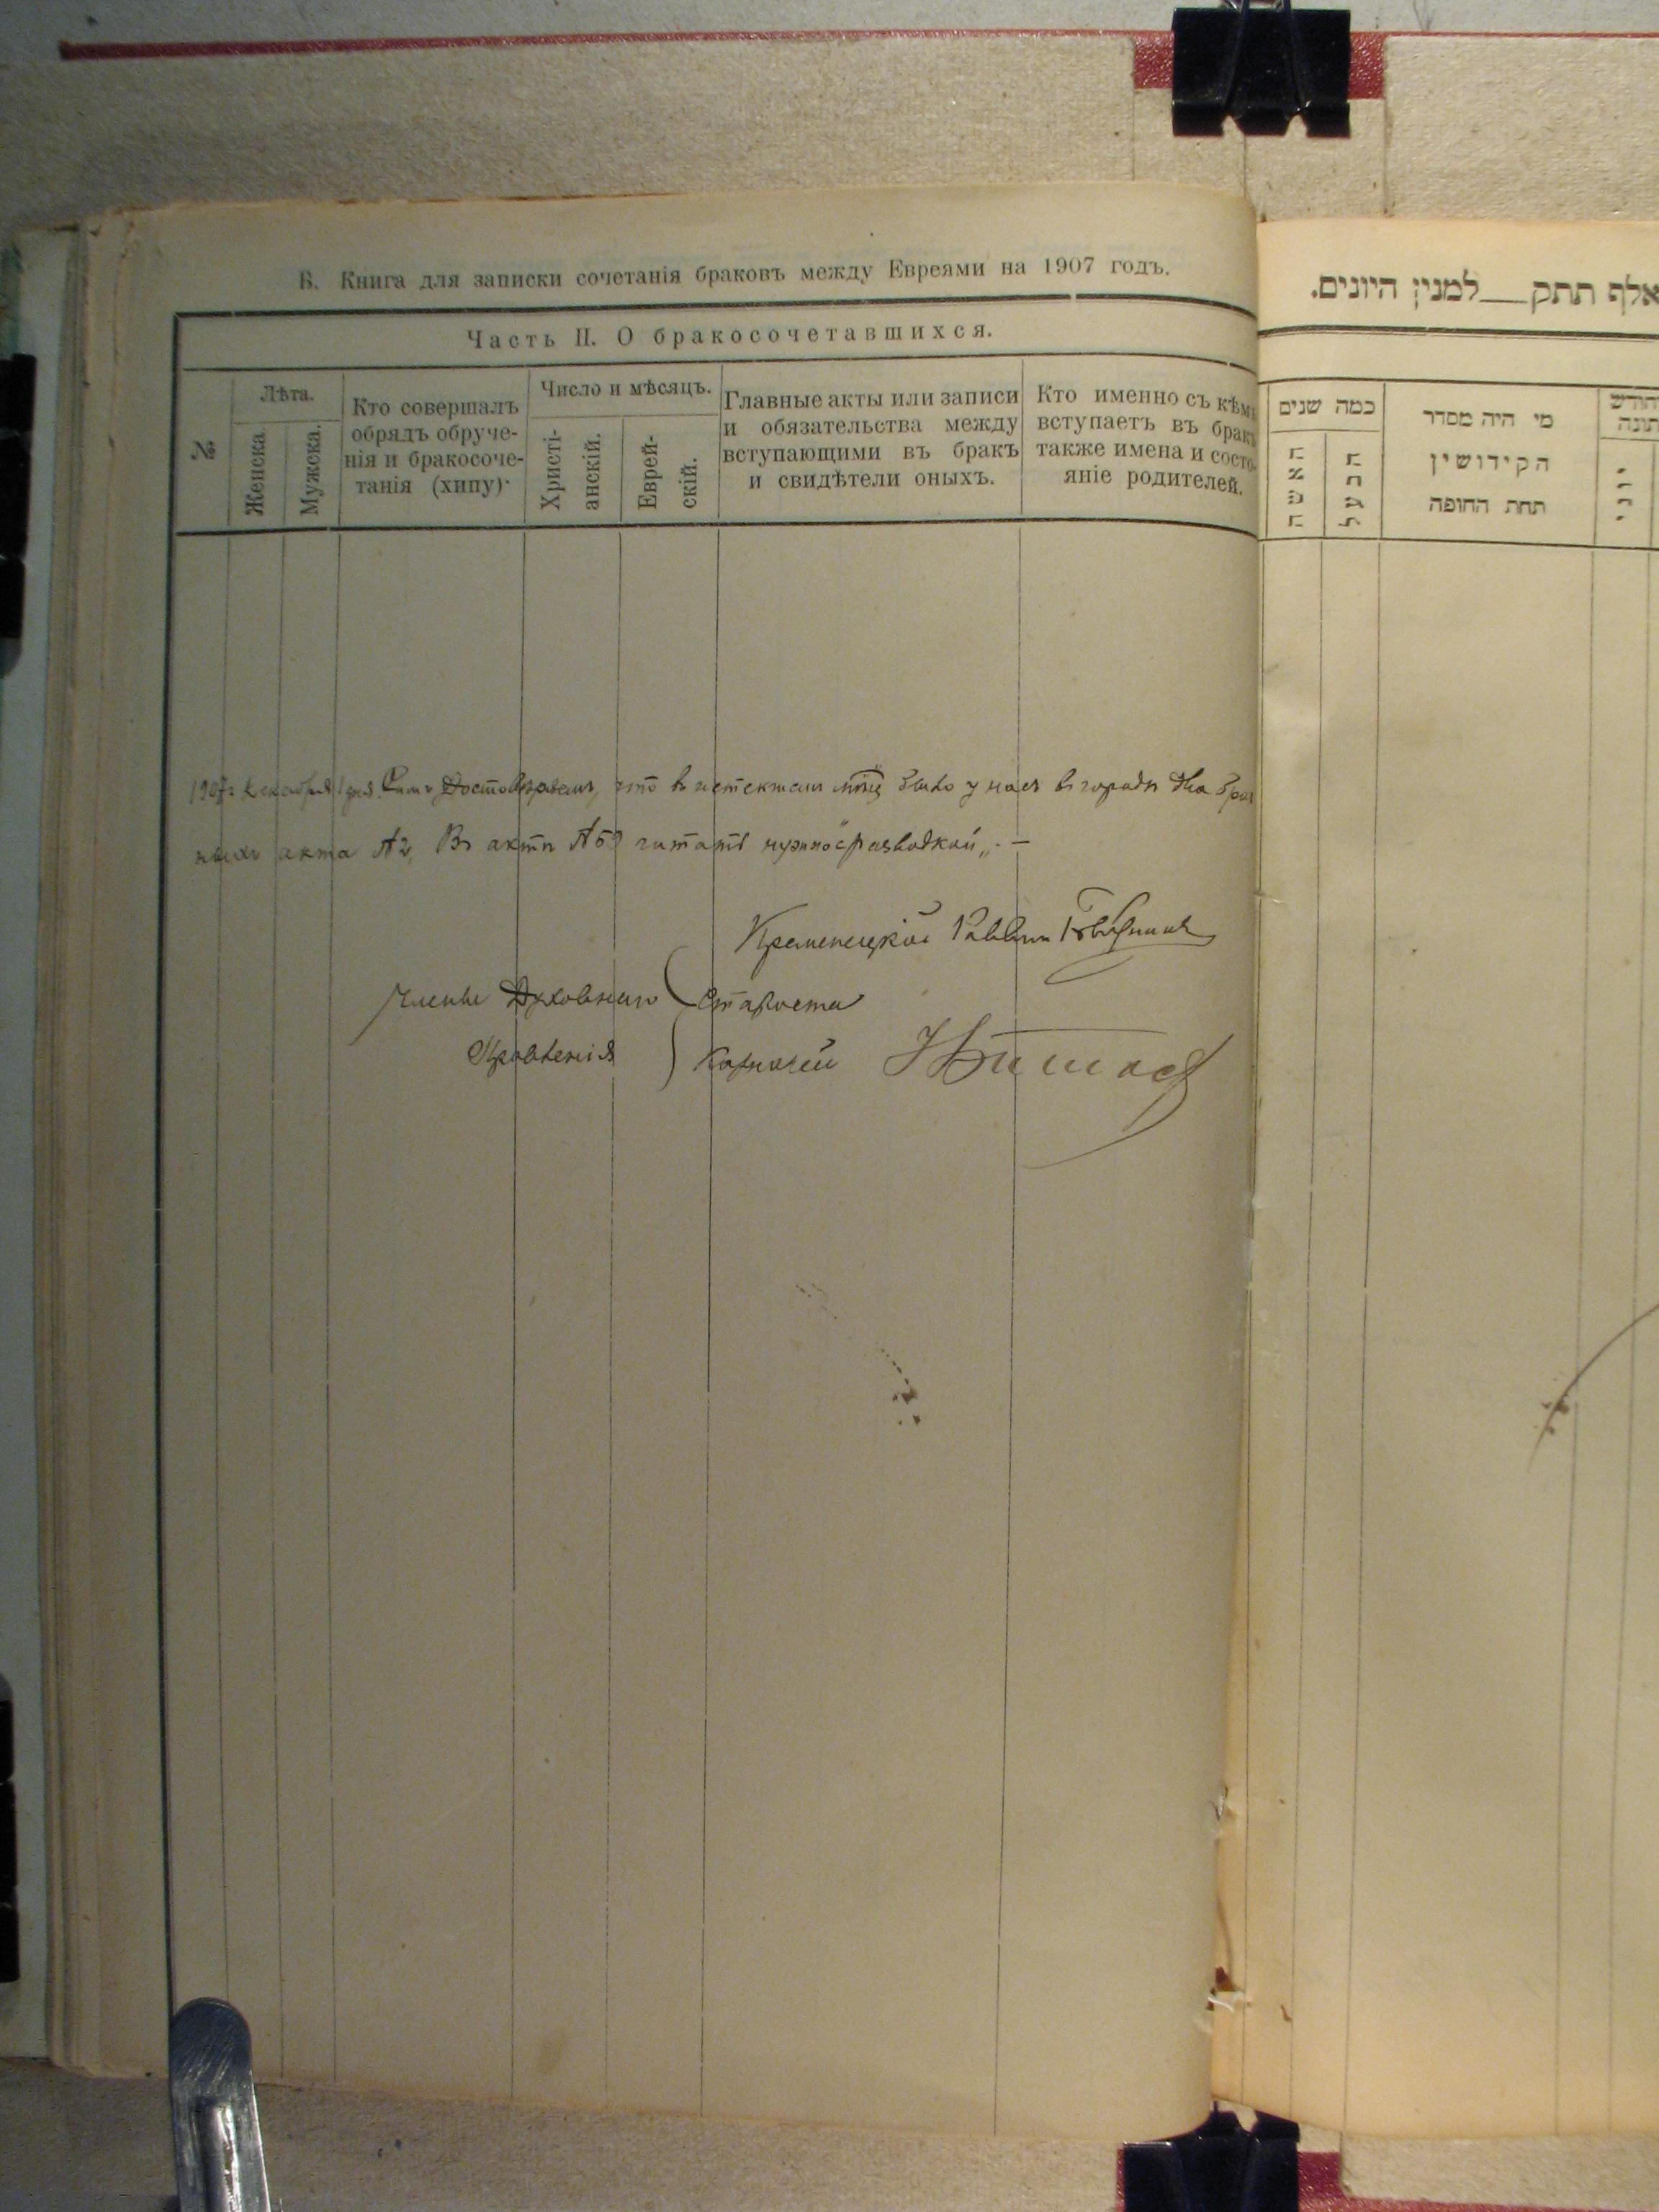 В. Книга для записки сочетанія браковъ между Евреями на 1907 годъ.
Часть II. О бракосочетавшихся.
№
Лѣта.
Женска
Мужска.
Кто совершалъ
обрядъ обруче-
нія и бракосоче-
танія (хипу)
Число и мѣсяцъ.
Христі-
анскій.
Еврей-
скій.
Главные акты или записи
и обязательства между
вступающими въ бракъ
и свидѣтели оныхъ.
Кто именно съ кѣмъ
вступаетъ въ бракъ
также имена и состо-
яніе родителей.
1907 г декабря 1 дня. Симъ Достовѣряемъ, что въ истекшем мѣсц было у насъ въ городѣ два брач
ныхъ акта №2, Въ актѣ №59 читать нужно „разводкой„. —
Кременецкій Раввинъ
Члены Духовнаго
Правленія
Староста
Казначей
אלף תתק__למנין היונים.
כמה שנים
האשה
הבעל
מי היה מסדר
הקידושין
תחת החופה